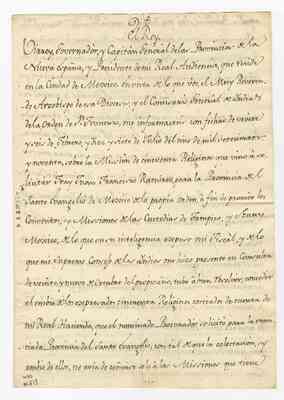 El Rey.
Virrey, Governador, y Capitan General de las Provincias de la
Nueva España, y Presidente de mi Real Audiencia, que reside
en la Ciudad de Mexico. En vista de lo que vos, el Muy Reveren-
do Arzobispo de esa Diocesi, y el Comisario General de Indias
de la Orden de Sn Francisco, me informaron con fechas de veinte
y seis de Febrero, y diez y siete de Julio del año de mil setecientos
y noventa, sobre la Mission de cincuenta Religiosos que vino a co-
lectar Fray Juan Francisco Ramirez, para la Provincia del
Santo Evangelio de Mexico de la propia Orden, a fin de proveer los
Conventos, y Missiones de las Custodias de Tampico, y Nuevo
Mexico, de lo que en su inteligencia expuso mi Fiscal, y de lo
que mi Supremo Consejo de las Indias me hizo presente en Consulta
de veinte y nueve de Octubre del proximo, tube a bien resolver, conceder
el embio de los expresados cincuenta Religiosos costeados de cuenta de
mi Real Hacienda, que el nominado Procurador solicitó para la enun-
ciada Provincia del Santo Evangelio, con tal de que la colectacion, y
embio de ellos, no sería de señalar a las Missiones que tiene